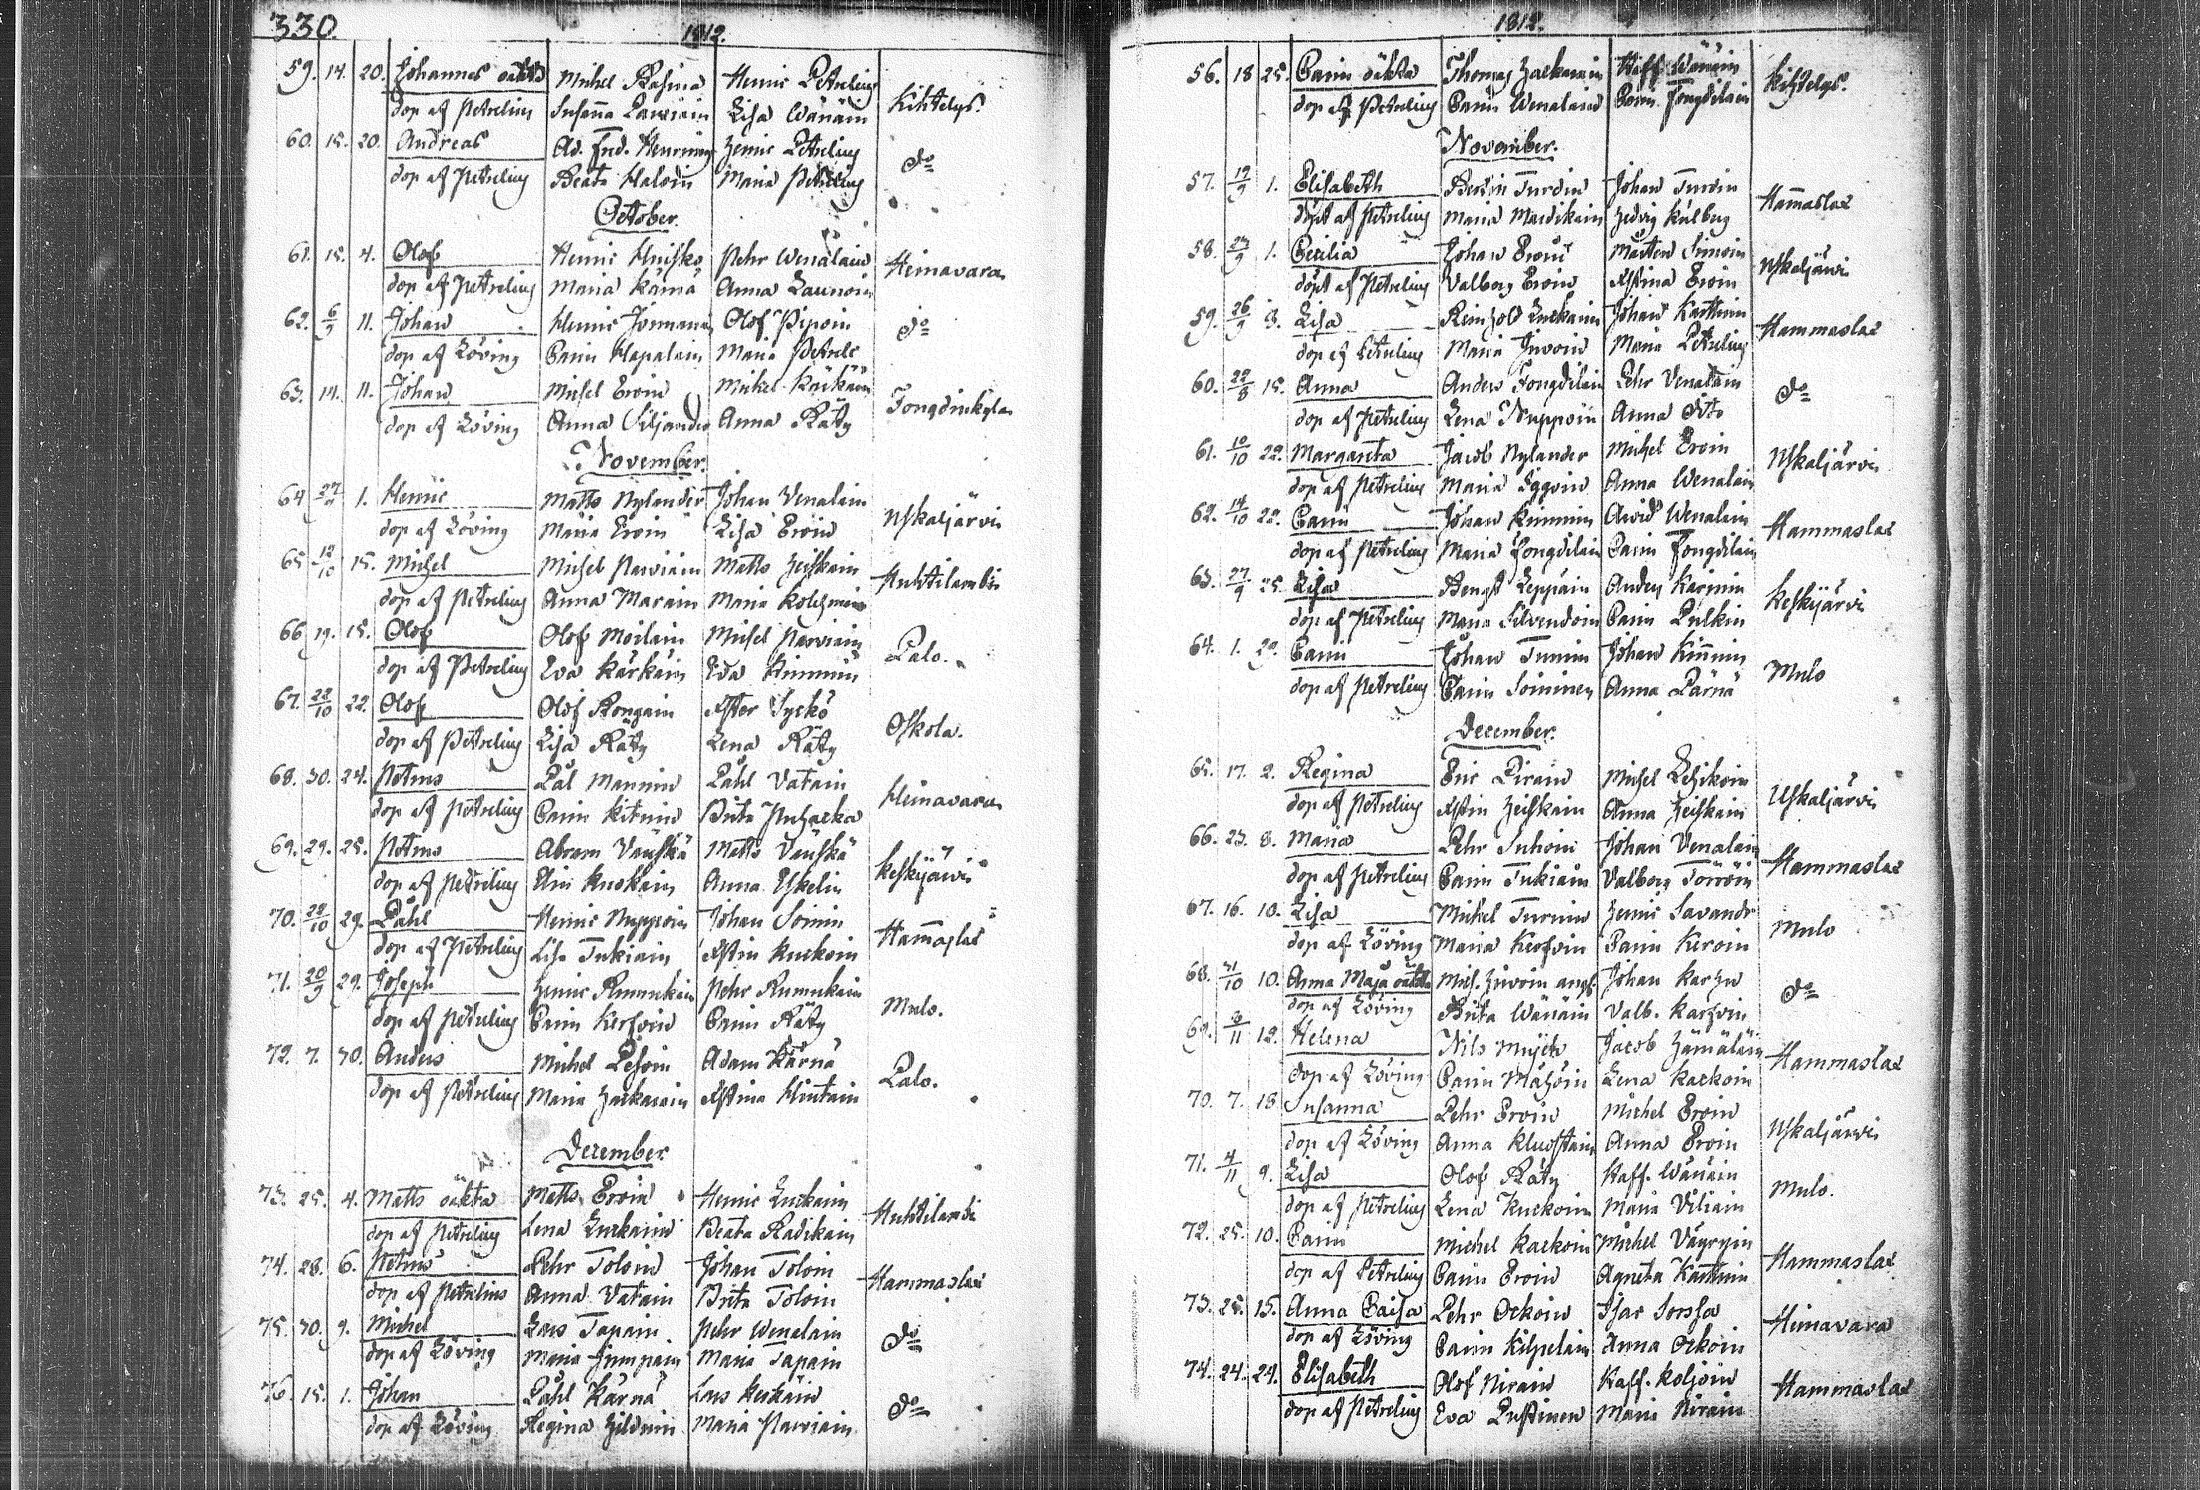 330.
1812.
59. 14. 20. Johannes oäkta Michel Rasina Henric Petrelius Kihtelys.
dop af Petrelius Susanna Parviain Lisa Wänäin
60. 15. 20. Andreas Ad. Fred. Henric Petrelius do
dop af Petrelius Beata Haloin Maria Petrelius
October.
61. 15. 4. Olof Henric Pehr Wenalain Heinavara
dop af Petrelius Maria Kärnä Anna Launoin
62. 6/9 11. Johan Henric Jormanain Olof Piipoin do
dop af Löving Carin Hapalain Maria
63. 14. 11. Johan Michel Eroin Michel Kärkäin Jongoinkyla
dop af Löving Anna Siljander Anna Räty
November.
64 1. Henric Matts Nylander Johan Venalain Uskaljärvi
dop af Löving Maria Eroin Lisa Eroin
65 12/10 15. Michel Michel Parviain Matts Heiskain Huhtilambi
dop af Petrelius Anna Marain Maria
66 19. 15. Olof Olof Moilain Michel Parviain Palo.
dop af Petrelius Eva Kärkäin Eva Kinnuin
67. 22/10 22. Olof Olof Rongain Syckö Oskola.
dop af Petrelius Lisa Räty Lena Räty
68. 30. 24. Petrus Pål Mannin Påhl Vatain Heinavara
dop af Petrelius Carin Brita Puhacka
69. 29. 25. Petrus Abram Väiskä Matts Väiskä Keskijärvi
dop af Petrelius Anna
70. 22/10 29. Påhl Henric Nuppoin Johan Soinin Hammaslax
dop af Petrelius Lisa Tukiain Kuckoin
71. 20/9 29. Joseph Henric Rummukain Pehr Rummukain Mulo.
dop af Petrelius Carin Kervoin Carin Räty
72. 7. 30. Anders Michel Adam Kärnä Palo.
dop af Petrelius Maria Hackarain Hintain
December.
73. 25. 4. Matts oäkta Matts Eroin Henric Luckain Huhtilambi
dop af Petrelius Lena Luckain Beata Radikain
74. 28. 6. Petrus Pehr Toloin Johan Toloin Hammaslax
dop af Petrelius Anna Vatain Brita Toloin
75. 30. 9. Michel Lars Tapain Pehr Wenalain do
dop af Löving Maria Jumpain Maria Tapain
76 15. 1. Johan Påhl Kärnä Lars do
dop af Löving Regina Maria Parviain
1812.
56. 18 25. Carin oäkta Thomas Hackarain Staff. Wänäin Kihtelys.
dop af Petrelius Carin Wenalain Carin Jongoilain
November.
57. 19/9 1. Elisabeth Turoin Johan Turoin Hammaslax
döpt af Petrelius Maria Mardikain Hedvig Kålberg
58. 23/9 1. Cecilia Johan Eroin Mårten Simoin Uskaljärvi
döpt af Petrelius Valborg Eroin Kristina Eroin
59. 26/9 3. Lisa Reinhold Luckain Johan Karttuin Hammaslax
dop af Petrelius Maria Juvoin Maria Petrelius
60. 22/8 15. Anna Anders Jongoilain Pehr Venalain do
dop af Petrelius Lena Nuppoin Anna Dito
61. 10/10 22. Margareta Jacob Nylander Michel Eroin Uskaljärvi
dop af Petrelius Maria Iggoin Anna Wenalain
62. 14/10 22. Carin Johan Kinnuin Arvid Wenalain Hammaslax
dop af Petrelius Maria Jongoilain Carin Jongoilain
63. 27/9 25. Lisa Bengt Leppain Anders Karjuin Keskijärvi
dop af Petrelius Maria Silvendoin Carin Pulkin
64. 1. 29. Carin Johan Turuin Johan Kinnuin Mulo
dop af Petrelius Carin Soininen Anna Pärnä
December.
65. 17. 2. Regina Eric Pirain Michel Leskoin Uskaljärvi
dop af Petrelius Heiskain Anna Heiskain
66. 23. 8. Maria Pehr Suhoin Johan Venalain Hammaslax
dop af Petrelius Carin Tukiain Valborg Törröin
67. 16. 10. Lisa Michel Turuin Henric Savander Mulo
dop af Löving Maria Kervoin Carin Keroin
68. 31/10 10. Anna Maja oäkta Mich. Hirvoin angf. Johan do
dop af Löving Brita Wänäin Valb.
69. 3/11 12. Helena Nils Jacob Hämäläin Hammaslax
dop af Löving Carin Mähöin Lena Kackoin
70. 7. 18 Susanna Pehr Eroin Michel Eroin Uskaljärvi
dop af Löving Anna Anna Eroin
71. 4/11 9. Lisa Olof Räty Staff. Wänäin Mulo.
dop af Petrelius Lena Kuckoin Maria Viliain
72. 25. 10. Carin Michel Kackoin Michel Väyryin Hammaslax
dop af Petrelius Carin Eroin Agneta Karttuin
73. 25. 15. Anna Caisa Pehr Ockoin Isac Sorssa Heinavara
dop af Löving Carin Kilpelain Anna Ockoin
74. 24. 29. Elisabeth Olof Nirain Staff. Koljoin Hammaslax
dop af Petrelius Eva Pustinen Maria Nirain